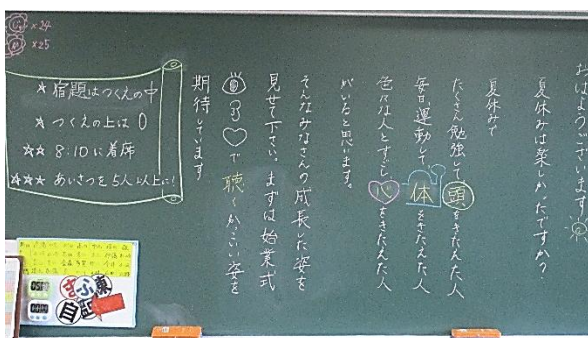 おはようございます
夏休みは楽しかったですか？
夏休みで
たくさん勉強して頭をきたえた人
毎日、運動して体をきたえた人
色々な人とすごし心をきたえた人
がいると思います。
そんなみなさんの成長した姿を
見せて下さい。まずは始業式
で聴くかっこいい姿を
期待しています。
×24
×25
☆ 宿題はつくえの中
☆ つくえの上は0
☆☆ 8:10に着席
☆☆☆ あいさつを5人以上に!